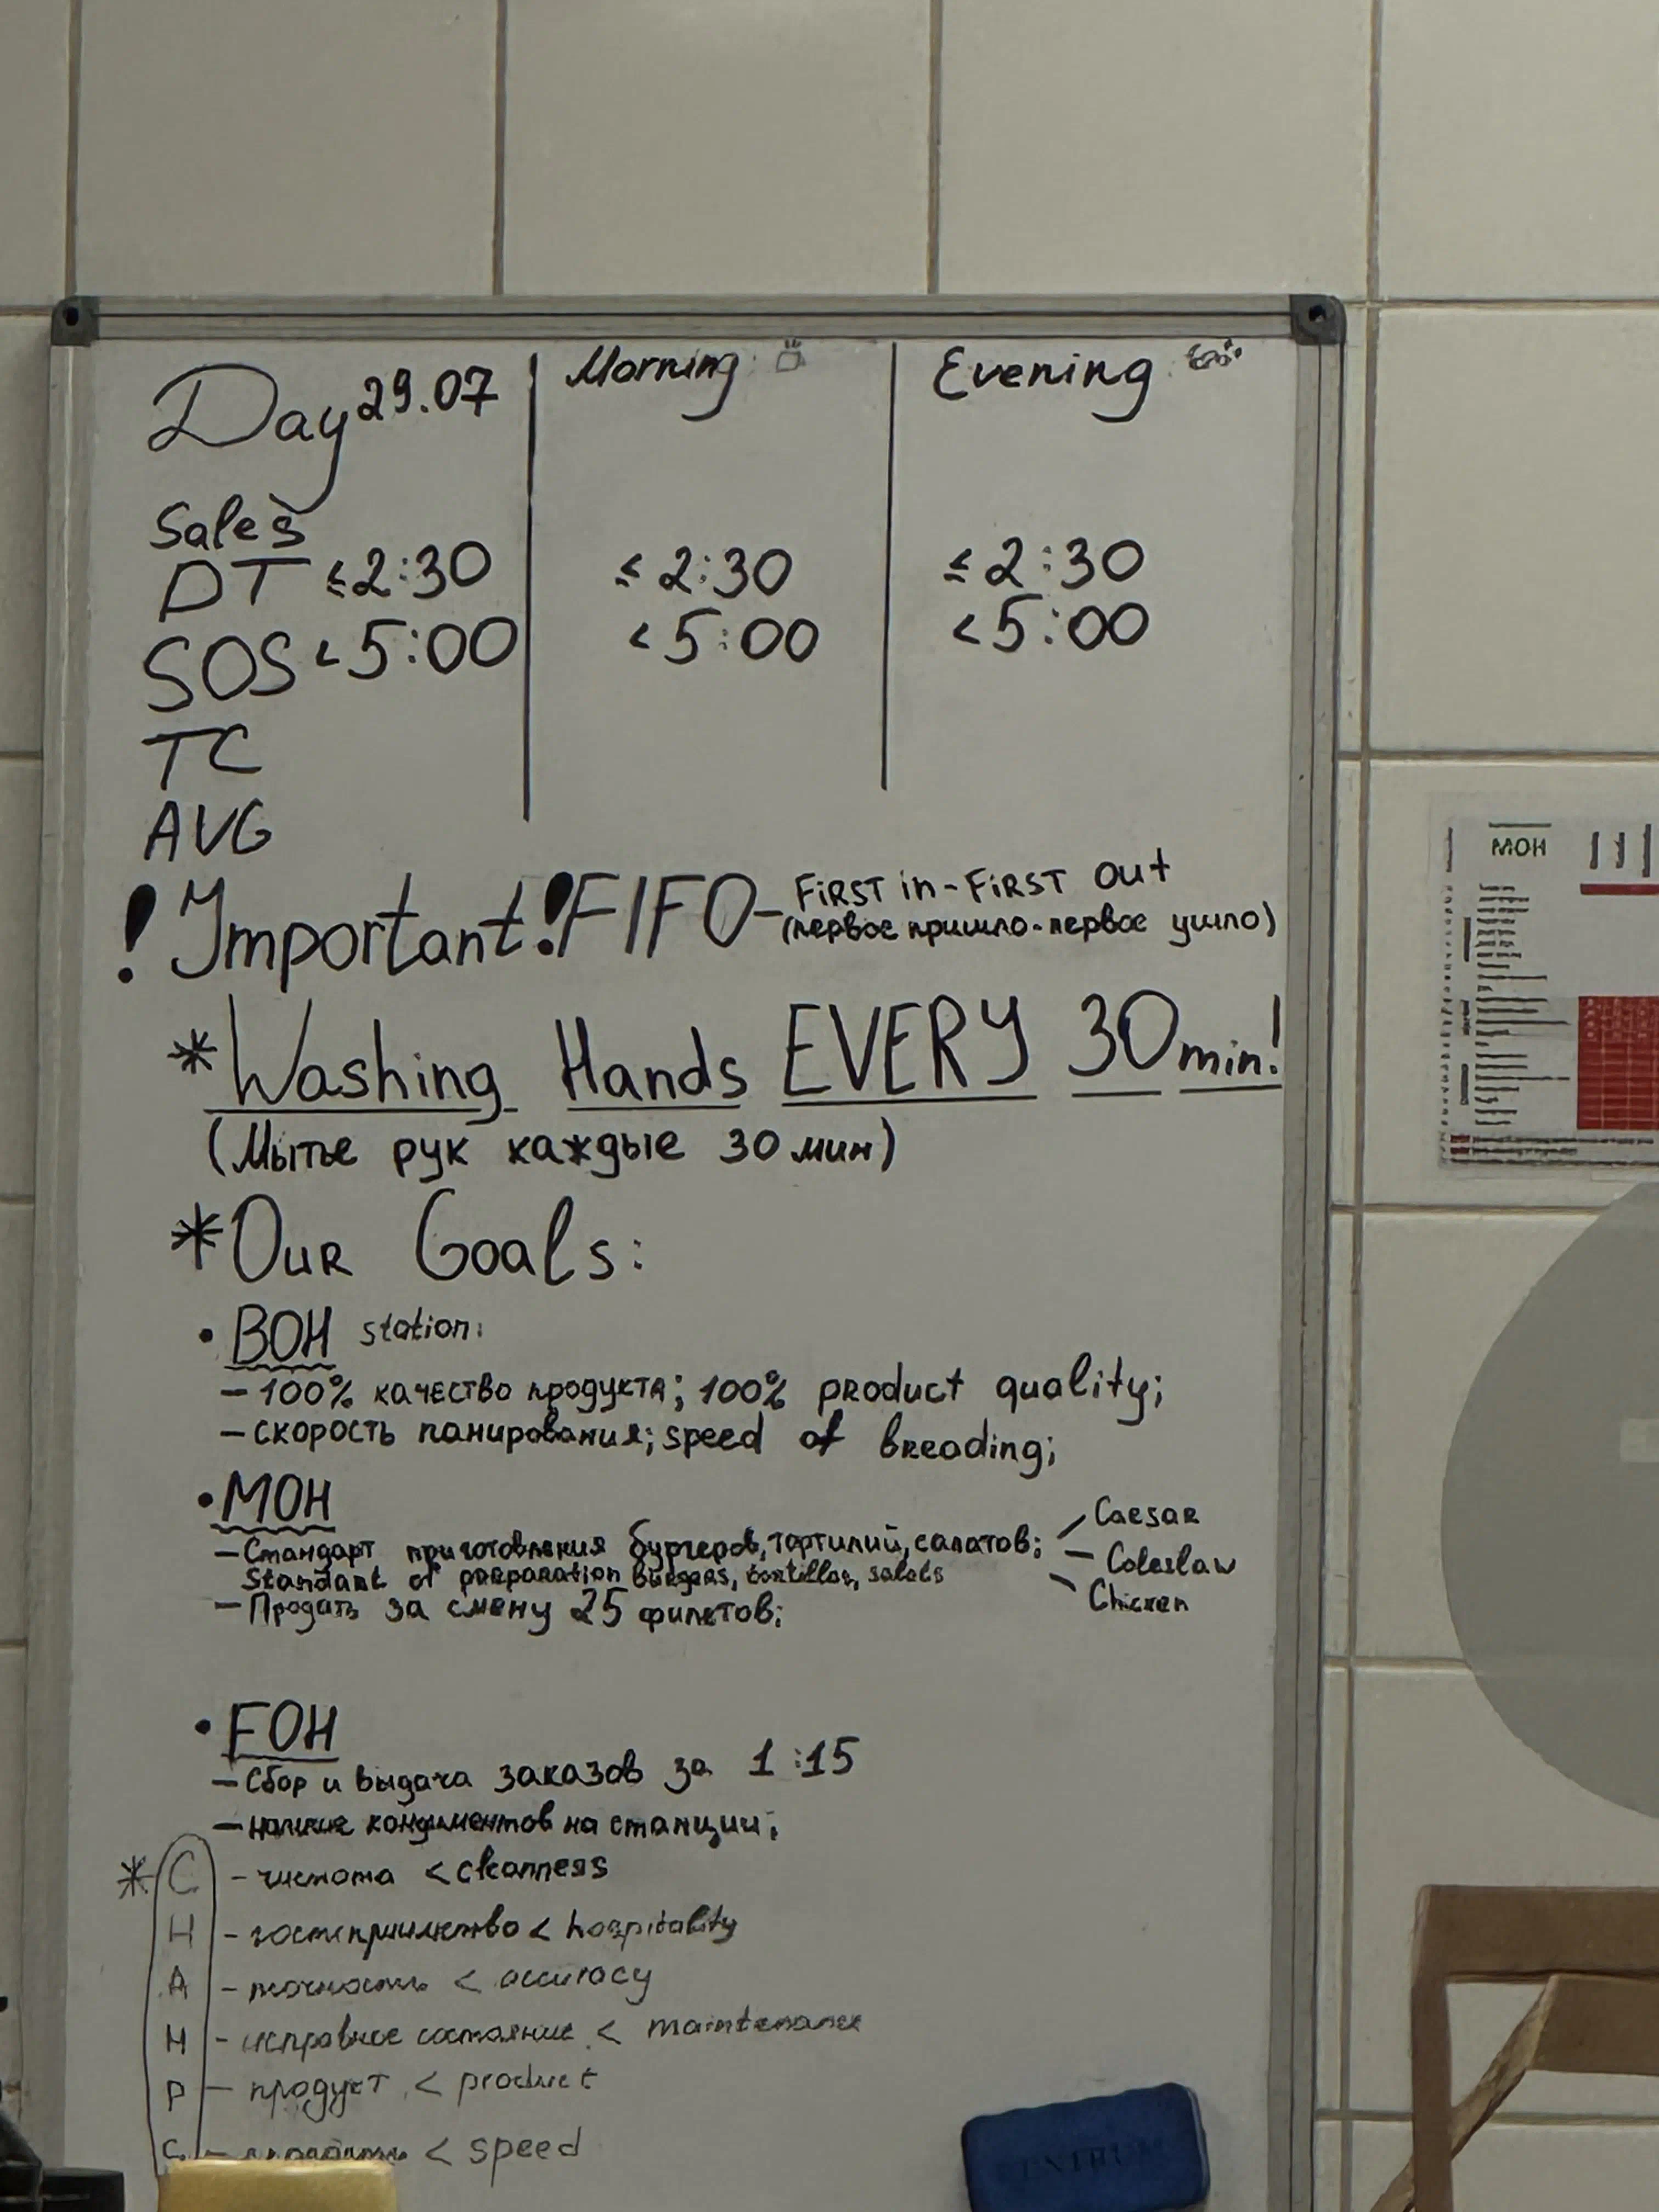 Day 29.07 Morning Evening
Sales
DT ≤2:30 ≤2:30 ≤2:30
SOS <5:00 <5:00 <5:00
TC
AVG
! Important! FIFO - FiRST in - FiRST Out
(первое пришло - первое ушло)
* Washing Hands EVERY 30 min!
(Мытье рук каждые 30 мин)
* Our Goals:
• BOH station:
- 100% качество продукта; 100% product quality;
- скорость панирования; speed of breading;
• MOH
- Стандарт приготовления бургеров, тортилий, салатов; Caesar
Standart of preparation burgers, tortillas, salats Coleslaw
- Продать за смену 25 филетов; Chicken
• FOH
- Сбор и выдача заказов за 1:15
- наличие кондиментов на станции;
* C - чистота < cleanness
H - гостеприимство < hospitality
A - точность < accuracy
М - исправное состояние < maintenance
P - продукт < product
- < speed
МОН